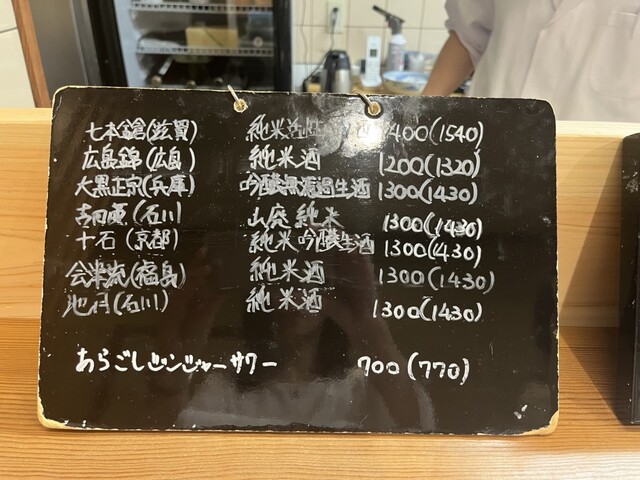 七本鎗(滋賀) 純米活性 酒 1400(1540)
広島錦(広島) 純米酒 1200(1320)
大黒正宗(兵庫) 吟醸無濾過生酒 1300(1430)
吉田蔵(石川 山廃純米 1300(1430)
十石(京都) 純米吟醸生酒 1300(1430)
会津流(福島) 純米酒 1300(1430)
池月(石川) 純米酒 1300(1430)
あらごしジンジャーサワー 700(770)